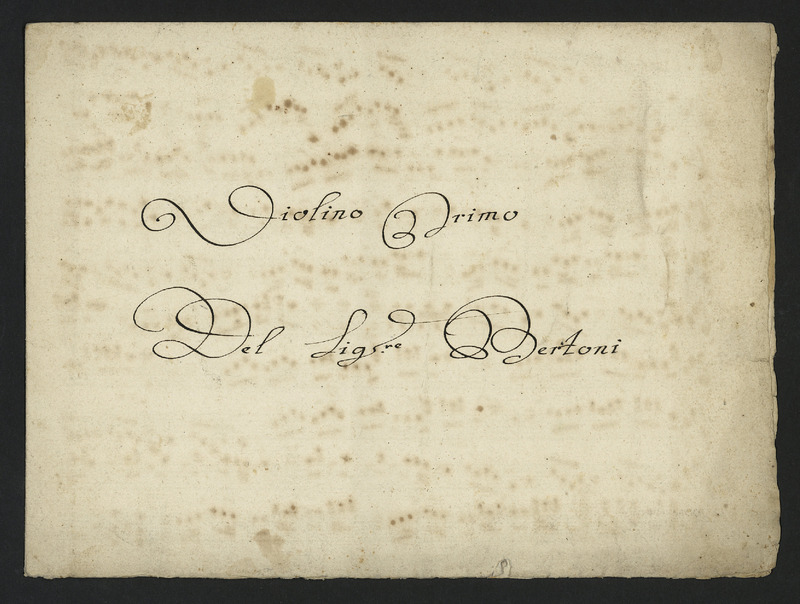 Violino Primo
Del Sig.re Bertoni